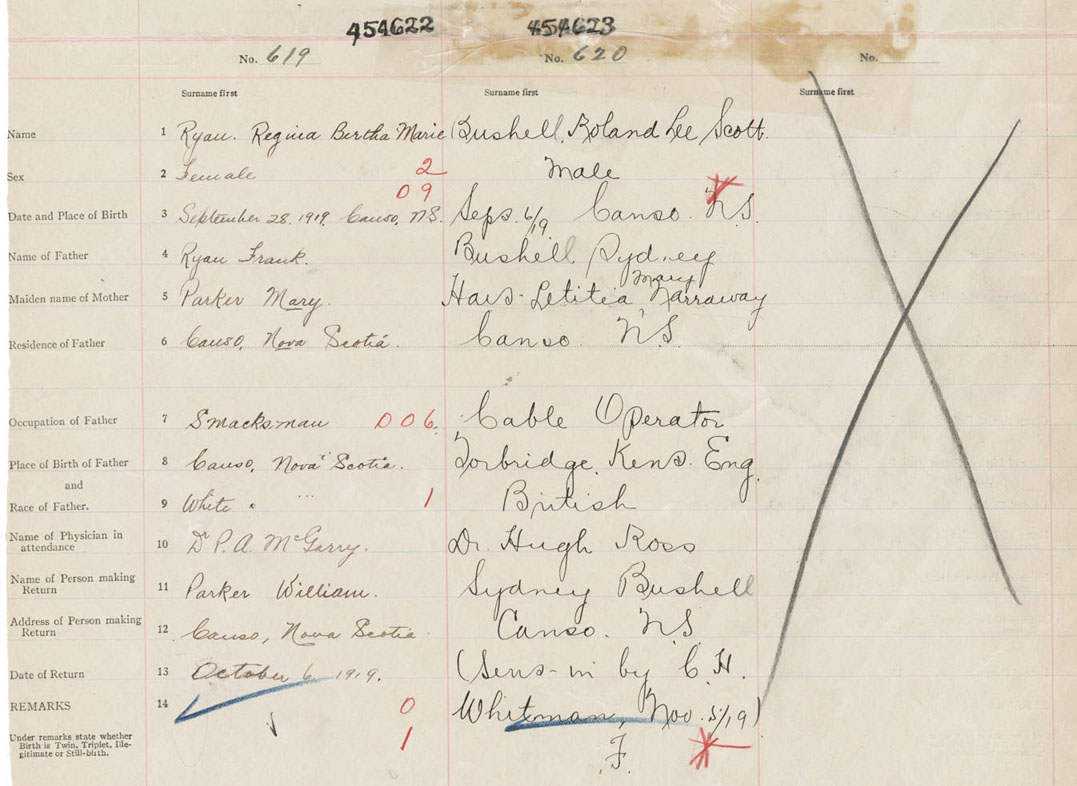 454622 454623
No. 619 No. 620 No.
Surname first Surname first Surname first
Name 1 Ryan. Regina Bertha Marie Bushell, Roland Lee Scott.
Sex 2 Female 2 Male
09
Date and Place of Birth 3 September 28. 1919, Canso, N.S. Sept. 6/19 Canso. N.S.
Name of Father 4 Ryan Frank. Bushell Sydney
Mary
Maiden name of Mother 5 Parker Mary. Letitia Narraway
Residence of Father 6 Canso, Nova Scotia. Canso. N.S.
Occupation of Father 7 Smacksman 006. Cable Operator
Place of Birth of Father 8 Canso, Nova Scotia. Kent. Eng.
and
Race of Father. 9 White " 1 British
Name of Physician in
attendance 10 Dr P. A. McGarry. Dr. Hugh Ross
Name of Person making
Return 11 Parker William. Sydney Bushell
Address of Person making
Return 12 Canso, Nova Scotia. Canso. N.S.
Date of Return 13 October 6, 1919. (Sent in by C. H.
REMARKS 14 0 Whitman, Nov. 5/19)
Under remarks state whether
Birth is Twin, Triplet, Ille-
gitimate or Still-birth. 1 F.